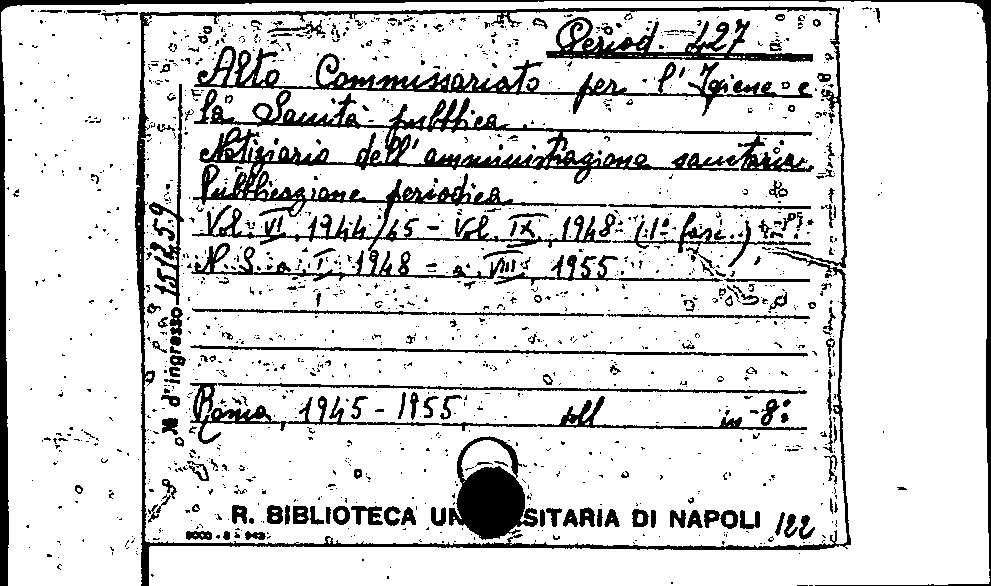 Period. 427
Alto Commissariato per l'Igiene e
la Sanità pubblica.
Notiziario dell'amministrazione sanitaria.
Pubblicazione periodica
Vol. VI, 1944/45 - Vol. IX, 1948 (1° fasc.)
N. S. a. I, 1948 - a. VIII, 1955
Roma, 1945-1955 voll in-8°
N. d'ingresso 151259
R. BIBLIOTECA UN SITARIA DI NAPOLI 122